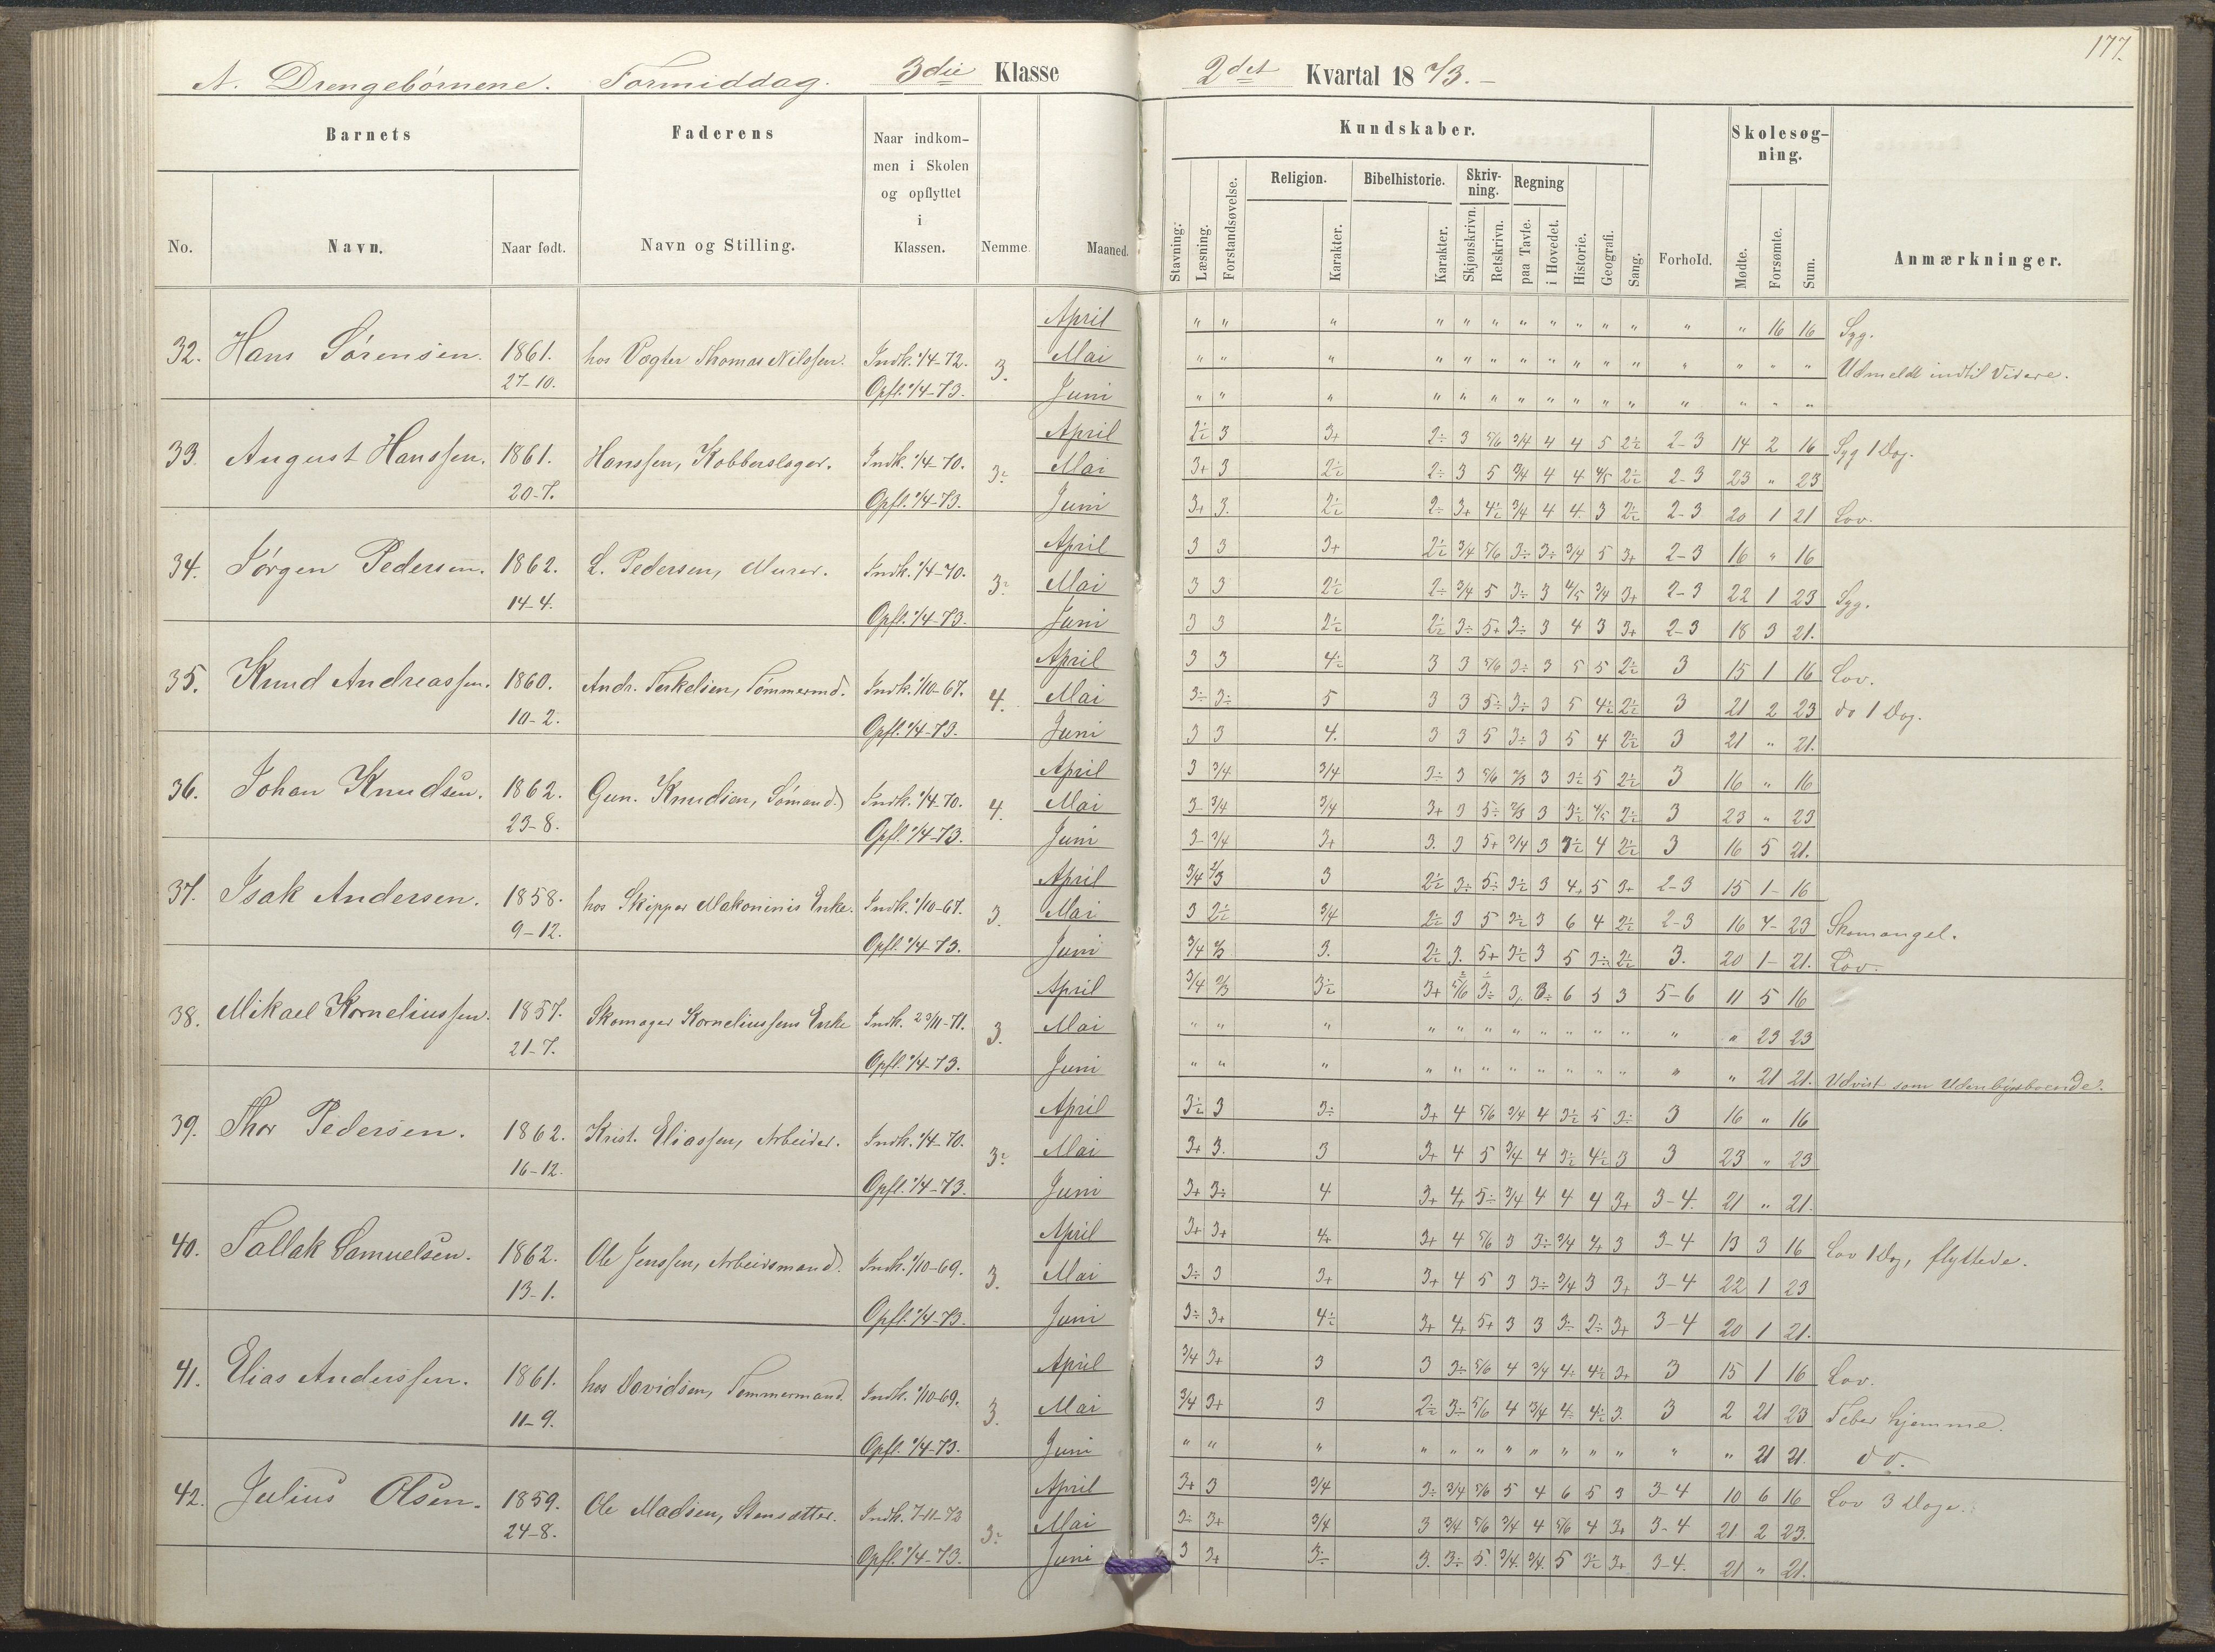 177.
A. Drengebørnene. Formiddag. 3die Klasse 2det Kvartal 1873.
Barnets Faderens Naar indkommen i Skolen og opflyttet i Klassen. Kundskaber. Skolesøgning.
No. Navn. Naar født. Navn og Stilling. Nemme. Maaned. Stavning. Læsning. Forstandsøvelse. Religion. Karakter. Bibelhistorie. Karakter. Skrivning. Skjønskrivn. Retskrivn. Regning paa Tavle. i Hovedet. Historie. Geografi. Sang. Forhold. Mødte. Forsømte. Sum. Anmærkninger.
April " " " " " " " " " " " " " 16 16 Syg.
32. Hans Sørensen. 1861. hos Vogter Thomas Nilssen. Indk. 1/4-72. 3. Mai " " " " " " " " " " " " " " " Udmeldt indtil Videre.
27-10. Opfl. 1/4-73. Juni " " " " " " " " " " " " " " "
April 2÷ 3 3+ 2÷ 3 5/6 3/4 4 4 5 2÷ 2-3 14 2 16 Syg 1 Dag.
33. August Hanssen. 1861. Hanssen, Kobberslager. Indk. 1/4-70. 3÷ Mai 3+ 3 2÷ 2÷ 3 5 3/4 4 4 4/5 2÷ 2-3 23 " 23
20-7. Opfl. 1/4-73. Juni 3+ 3. 2÷ 2÷ 3+ 4÷ 3/4 4 4 3 2÷ 2-3 20 1 21 Lov.
April 3 3 3+ 2÷ 3/4 5/6 3÷ 3÷ 3/4 5 3+ 2-3 16 " 16
34. Jørgen Pedersen. 1862. L. Pedersen, Murer. Indk. 1/4-70. 3÷ Mai 3 3 2÷ 2÷ 3/4 5 3÷ 3 4/5 3/4 3+ 2-3 22 1 23 Syg.
14-4. Opfl. 1/4-73. Juni 3 3 2÷ 2÷ 3÷ 5+ 3÷ 3 4 3 3+ 2-3 18 3 21.
April 3 3 4÷ 3 3 5/6 3÷ 3 5 5 2÷ 3 15 1 16 Lov.
35. Knud Andreassen. 1860. Andr. Terkelsen, Tømmermd. Indk. 1/10-67. 4. Mai 3÷ 3÷ 5 3 3 5÷ 3÷ 3 5 4÷ 2÷ 3 21 2 23 do 1 Dag.
10-2. Opfl. 1/4-73. Juni 3 3 4. 3 3 5 3÷ 3 5 4 2÷ 3 21 " 21.
April 3 3/4 3/4 3÷ 3 5/6 2/3 3 3÷ 5 2÷ 3 16 " 16
36. Johan Knudsen. 1862. Gun. Knudsen, Sømand. Indk. 1/4-70. 4. Mai 3- 3/4 3/4 3+ 3 5÷ 2/3 3 3÷ 4/5 2÷ 3 23 " 23
23-8. Opfl. 1/4-73. Juni 3- 3/4 3+ 3. 3 5+ 3/4 3 3÷ 4 2÷ 3 16 5 21.
April 3/4 2/3 3 2÷ 3÷ 5÷ 3÷ 3 4+ 5 3+ 2-3 15 1- 16
37. Isak Andersen. 1858. hos Skipper Enke. Indk. 1/10-67. 3. Mai 3 2÷ 3/4 2÷ 3 5 3÷ 3 6 4 2÷ 2-3 16 7- 23 Skomangel.
9-12. Opfl. 1/4-73. Juni 3/4 2/3 3. 2÷ 3. 5+ 3÷ 3 5 3÷ 2÷ 3. 20 1- 21. Lov.
April 3/4 2/3 3÷ 3+ 5/6 3÷ 3, 3÷ 6 5 3 5-6 11 5 16
38. Mikael Korneliussen. 1857. Skomager Korneliussens Enke Indk. 23/11-71. 3. Mai " " " " " " " " " " " " " 23 23
21-7. Opfl. 1/4-73. Juni " " " " " " " " " " " " " 21 21. Udvist som Udenbysboende.
April 3÷ 3 3÷ 3+ 4 5/6 3/4 4 3÷ 5 3÷ 3 16 " 16
39. Thor Pedersen. 1862. Krist. Eliassen, Arbeider. Indk. 1/4-70. 3÷ Mai 3+ 3. 3 3+ 4 5 3/4 4 3÷ 4÷ 3 3 23 " 23
16-12. Opfl. 1/4-73. Juni 3+ 3÷ 4 3+ 4+ 5÷ 3/4 4 4 4 3+ 3-4. 21 " 21.
April 3+ 3+ 4+ 3+ 4 5/6 3 3÷ 3/4 4+ 3 3-4 13 3 16 Lov 1 Dag, flyttede.
40. Tallak Samuelsen. 1862. Ole Jenssen, Arbeidsmand. Indk. 1/10-69. 3. Mai 3÷ 3 3+ 3+ 4 5 3 3÷ 3/4 3 3+ 3-4 22 1 23
13-1. Opfl. 1/4-73. Juni 3÷ 3+ 4÷ 3+ 4+ 5+ 3 3 3÷ 2÷ 3+ 3-4 20 1 21.
April 3/4 3+ 3 3 3÷ 5/6 4 3/4 4÷ 4÷ 3+ 3 15 1 16 Lov.
41. Elias Anderssen. 1861. hos Davidsen, Tømmermand. Indk. 1/10-69. 3. Mai 3/4 3+ 3 2÷ 3÷ 5/6 4 3/4 4÷ 4÷ 3. 3 2 21 23 Feber hjemme.
11-9. Opfl. 1/4-73. Juni " " " " " " " " " " " " " 21 21. do.
April 3+ 3 3/4 3÷ 3/4 5/6 5 4 6 5 3 3-4 10 6 16 Lov 3 Dage.
42. Julius Olsen. 1859. Ole Madsen, Stensætter. Indk. 7-11-72 3÷ Mai 3÷ 3+ 3/4 3 3/4 5/6 3/4 4 5/6 4 3+ 3-4 21 2 23.
24-8. Opfl. 1/4-73. Juni 3 3+ 3÷ 3. 3÷ 5. 3/4. 3/4. 5 3÷ 3+ 3-4. 21 " 21.